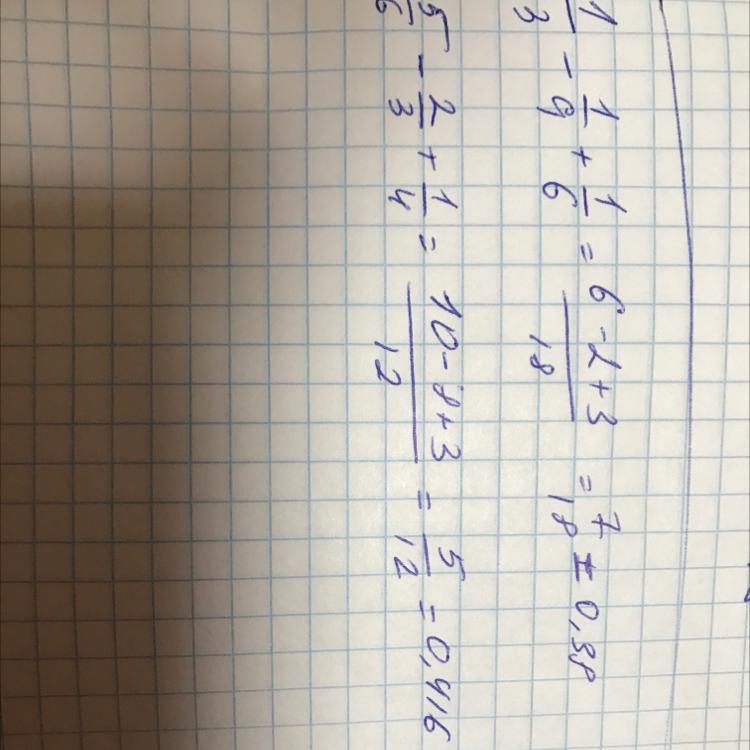 1/3 - 1/9 + 1/6 = 6-2+3/18 = 7/18 = 0,38
5/6 - 2/3 + 1/4 = 10-8+3/12 = 5/12 = 0,416